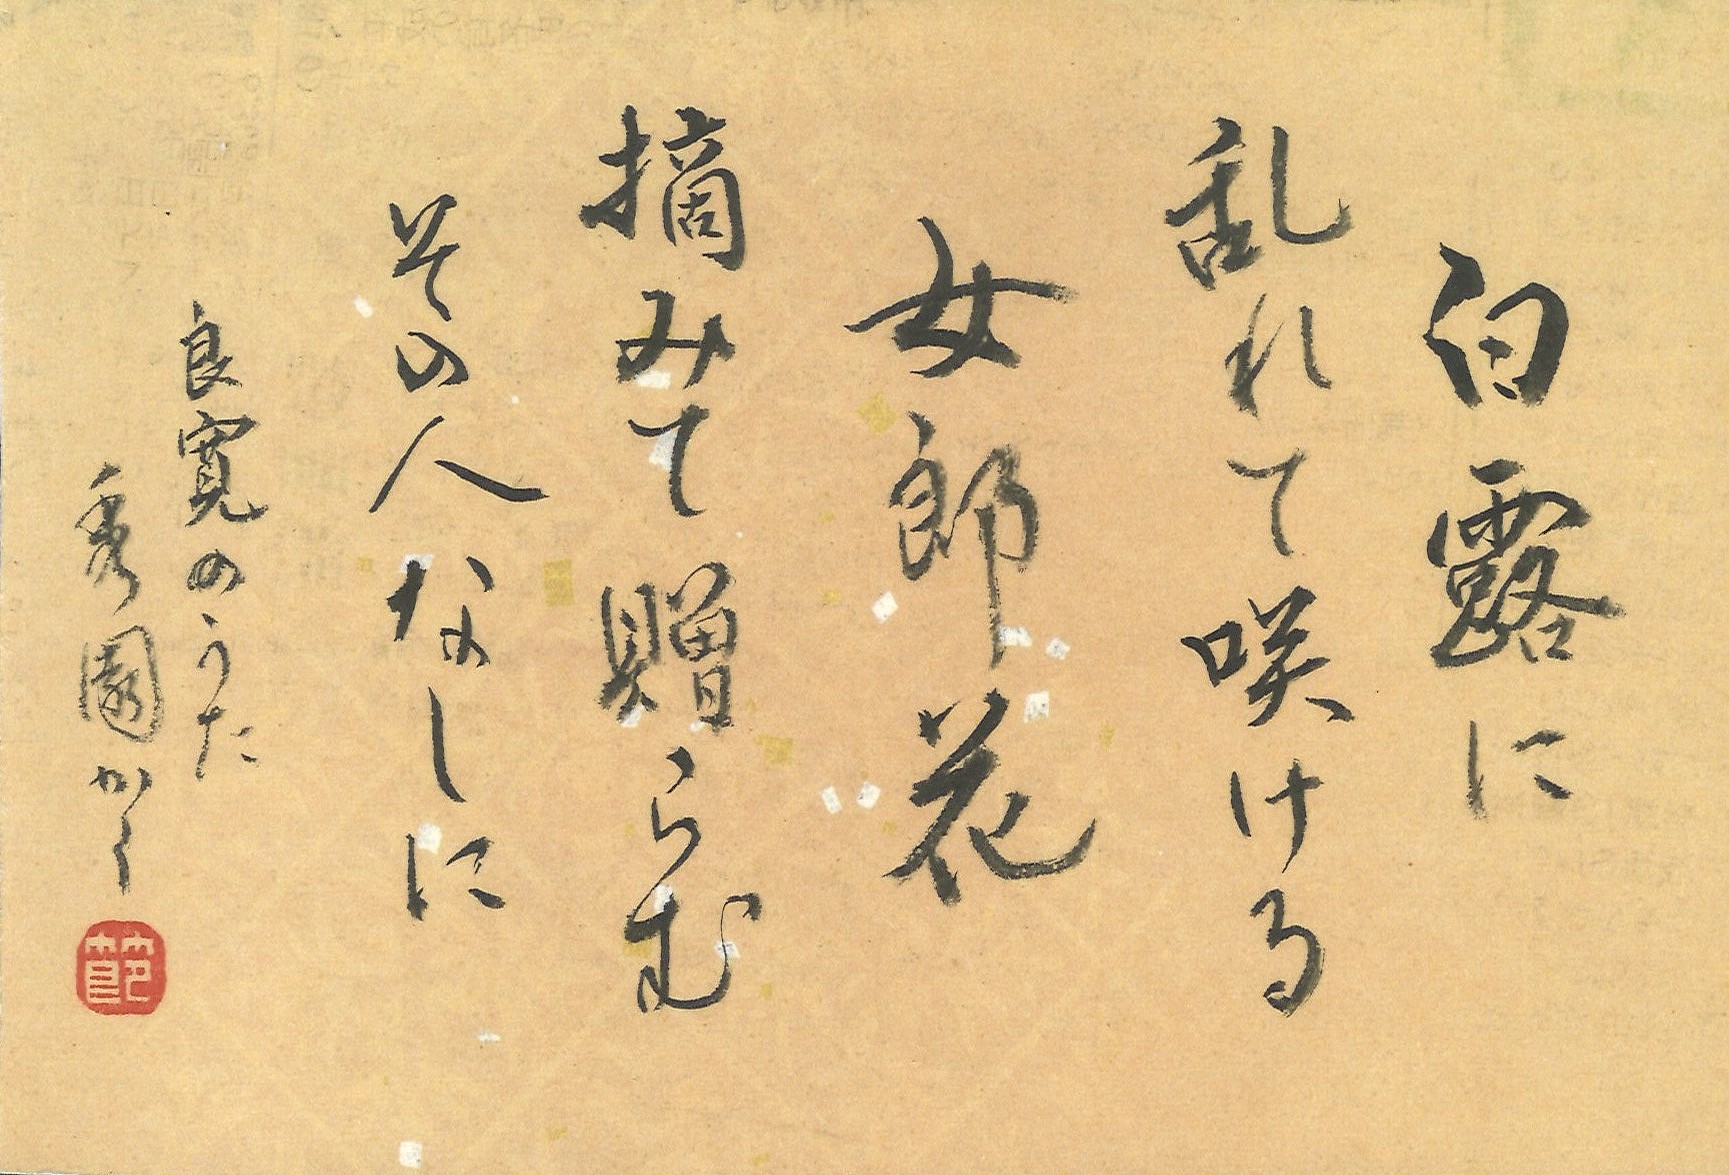 白露に
乱れて咲ける
女郎花
摘みて贈らむ
その人なしに
良寛のうた
秀園かく